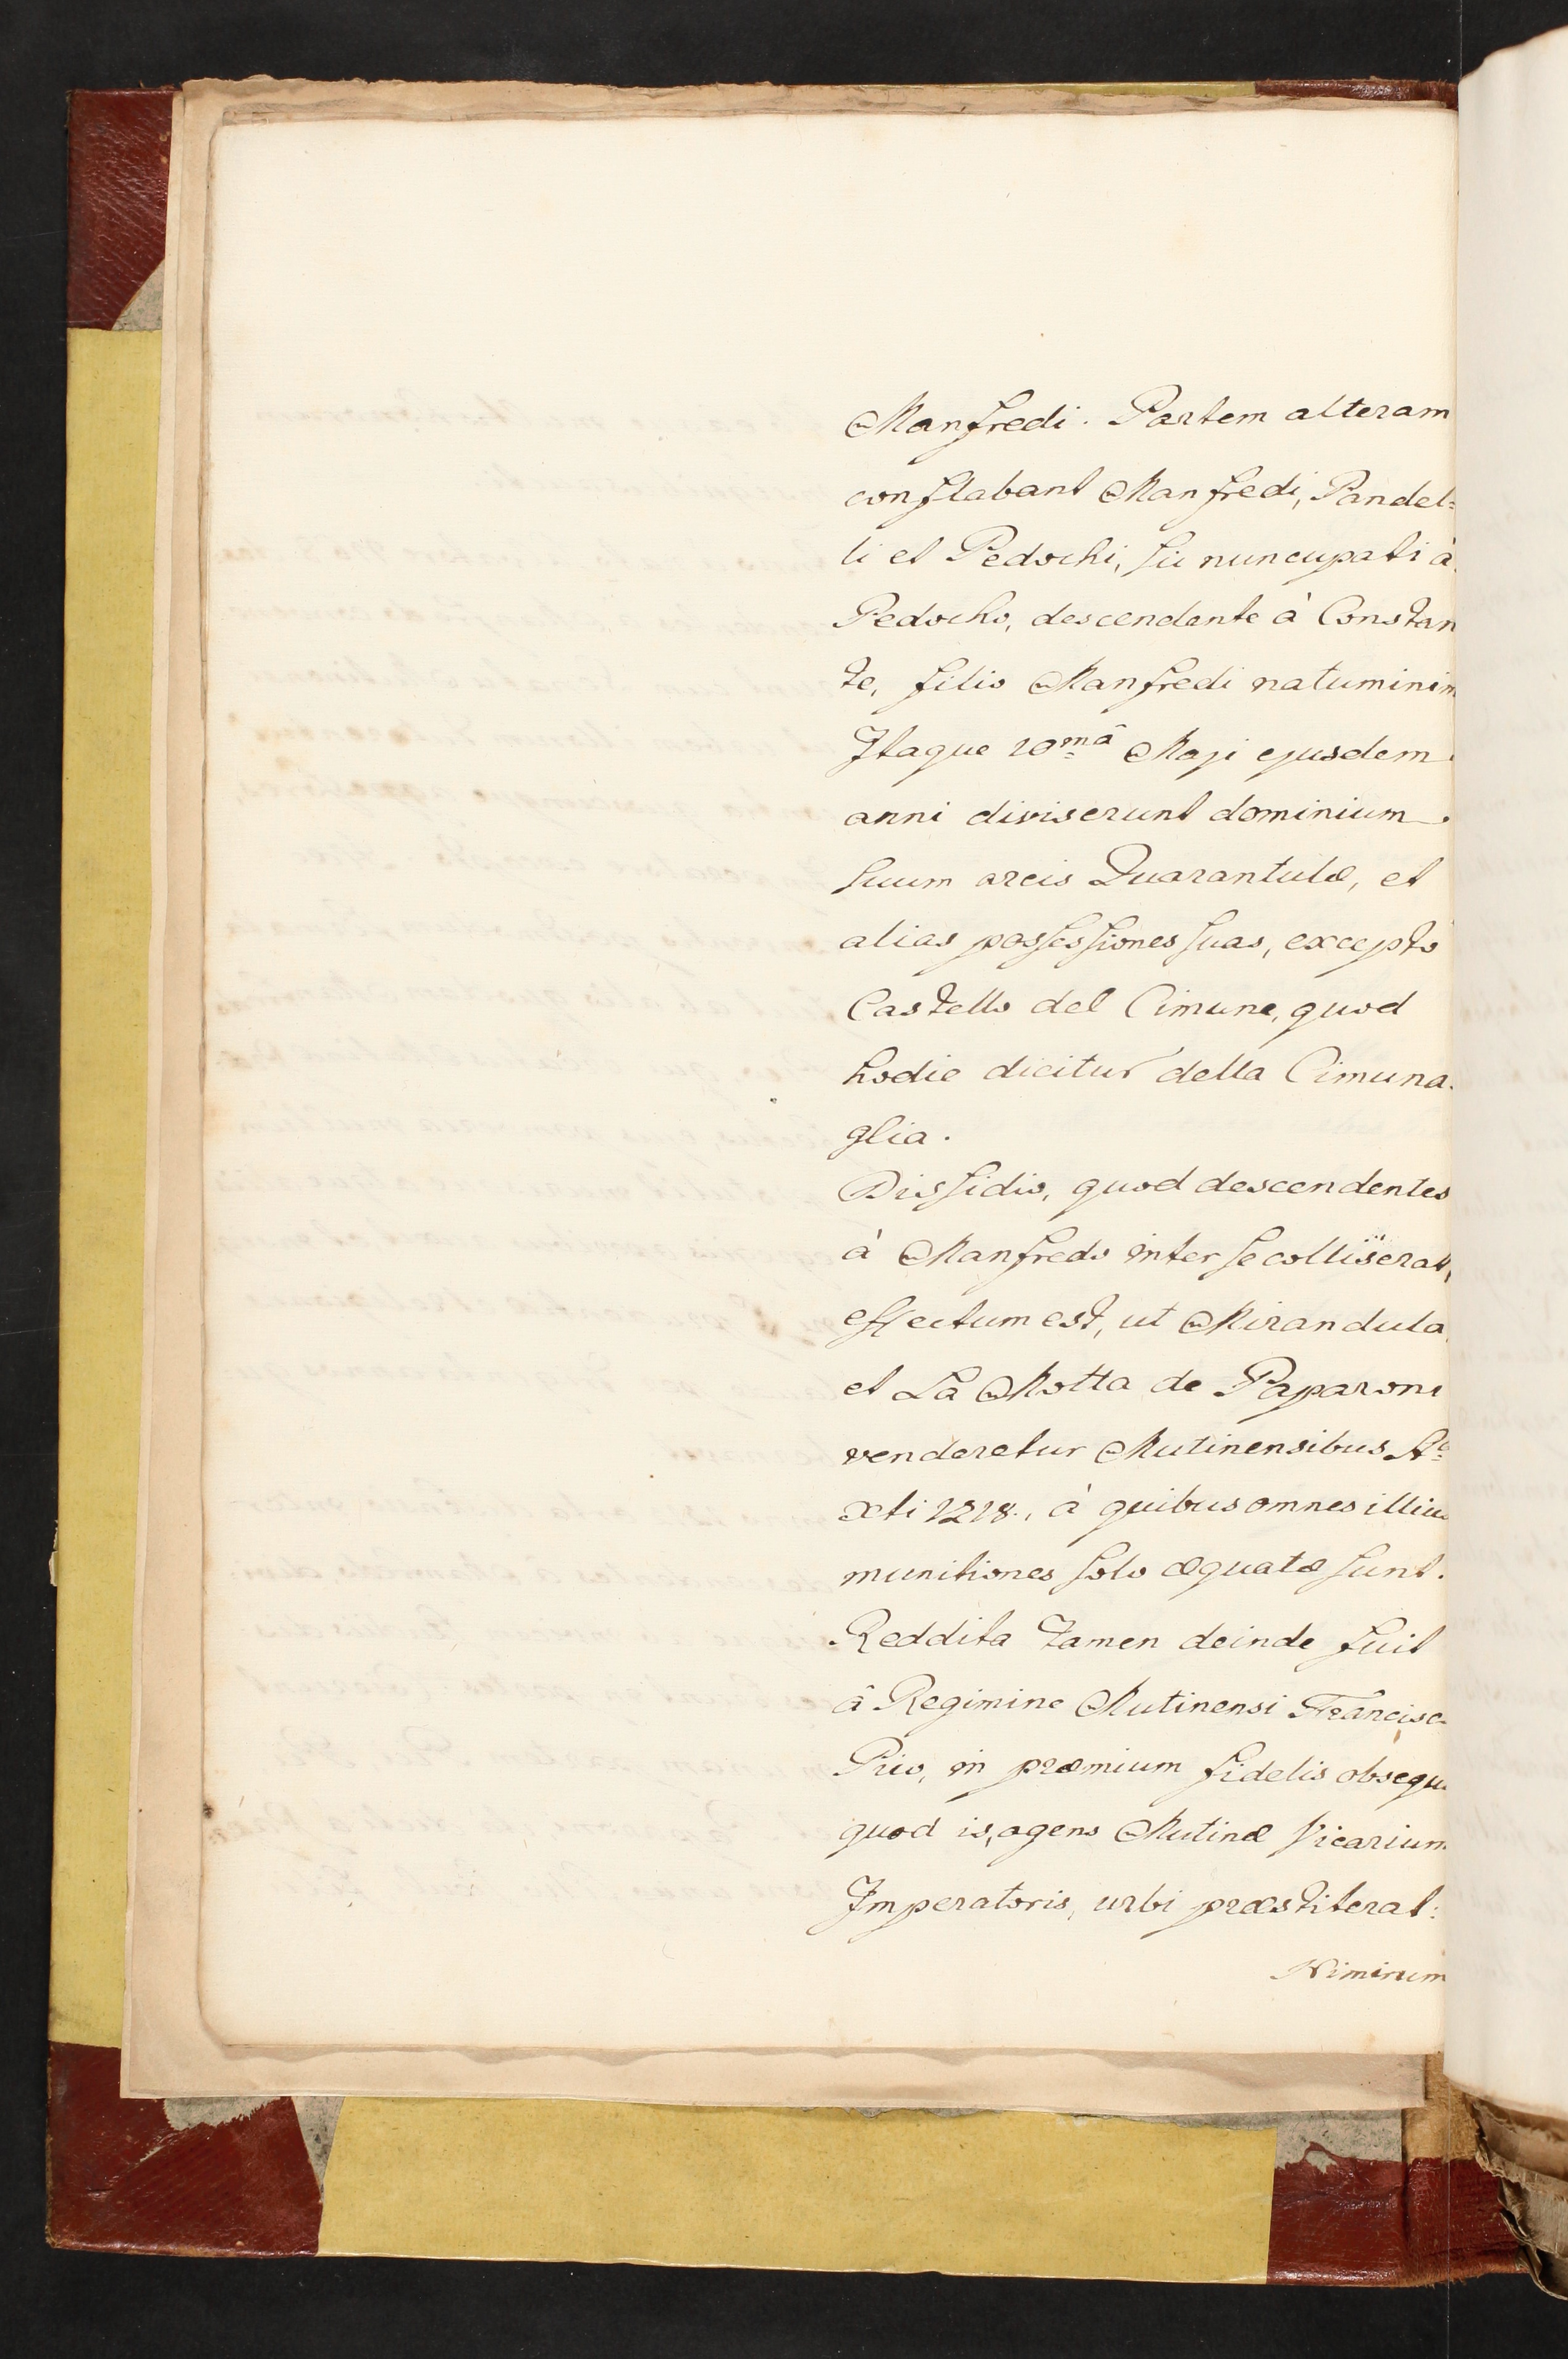 Manfredi. Partem alteram
conflabant Manfredi, Pandel=
li et Pedochi, sic nuncupati à
Pedocho, descendente à Constan
te, filio Manfredi natuminim
Itaque 10mâ Maji ejusdem
anni diviserunt dominium
suum arcis Quarantulæ, et
alias possessiones suas, excepto
Castello del Cimune, quod
hodie dicitur della Cimuna
glia.
Dissidio, quod descendentes
à Manfredo inter se colliserat,
effectum est, ut Mirandula
et La Motta de Paparoni
venderetur Mutinensibus Aº
xti 1218., à quibus omnes illiu
munitiones solo æquatæ sunt.
Reddita tamen deinde fuit
â Regimine Mutinensi Francisc
Pio, in præmium fidelis obsequ
quod is, agens Mutinæ Vicarium
Imperatoris, urbi præstiterat:
Nimirum